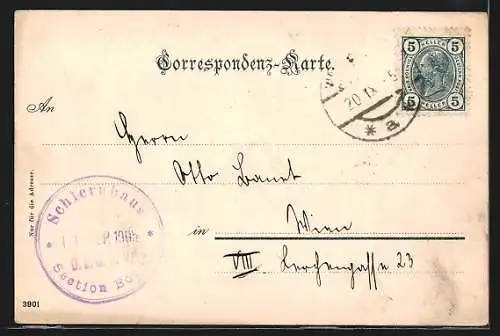 Correspondenz-Karte.
5 HELLER 5
5 HELLER 5
20 IX 5
* a
An
Herrn
Otto
in Wien
VIII Lerchengasse 23
Nur für die Adresse.
Schlernhaus
1905
Section
3901